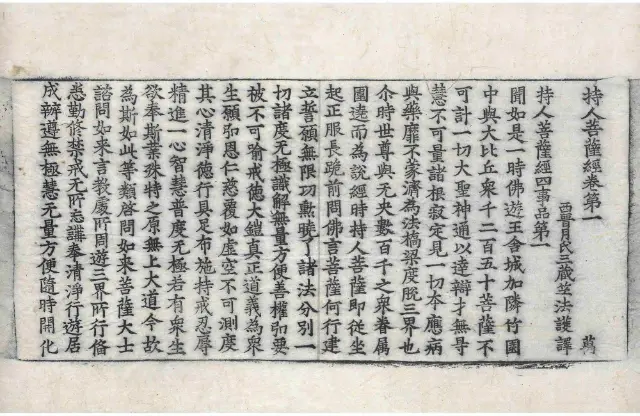 持人菩薩經卷第一 萬
西晉月氏三藏竺法護譯
持人菩薩經四事品第一
聞如是一時佛遊王舍城加隣竹園
中與大比丘眾千二百五十菩薩不
可計一切大聖神通以達辯才無㝵
慧不可量諸根寂定見一切本應病
與藥靡不蒙濟為法橋梁度脫三界也
尒時世尊與无央數百千之眾眷属
圍遶而為說經時持人菩薩即從坐
起正服長跪前問佛言菩薩何行建
立誓願無限功勲曉了諸法分別一
切諸度无極識解無量方便善權弘要
被不可喻戒德大鎧真正道義為眾
生願弘恩仁慈覆如虛空不可測度
其心清淨德行具足布施持戒忍辱
精進一心智慧普度无極若有眾生
欲奉斯業殊特之原無上大道今故
為斯如此等類啓問如來菩薩大士
諮問如來言教處所周遊三界所行
悉勤修禁戒无所講奉清淨行遊居
成辦遵無極慧无量方便隨時開化